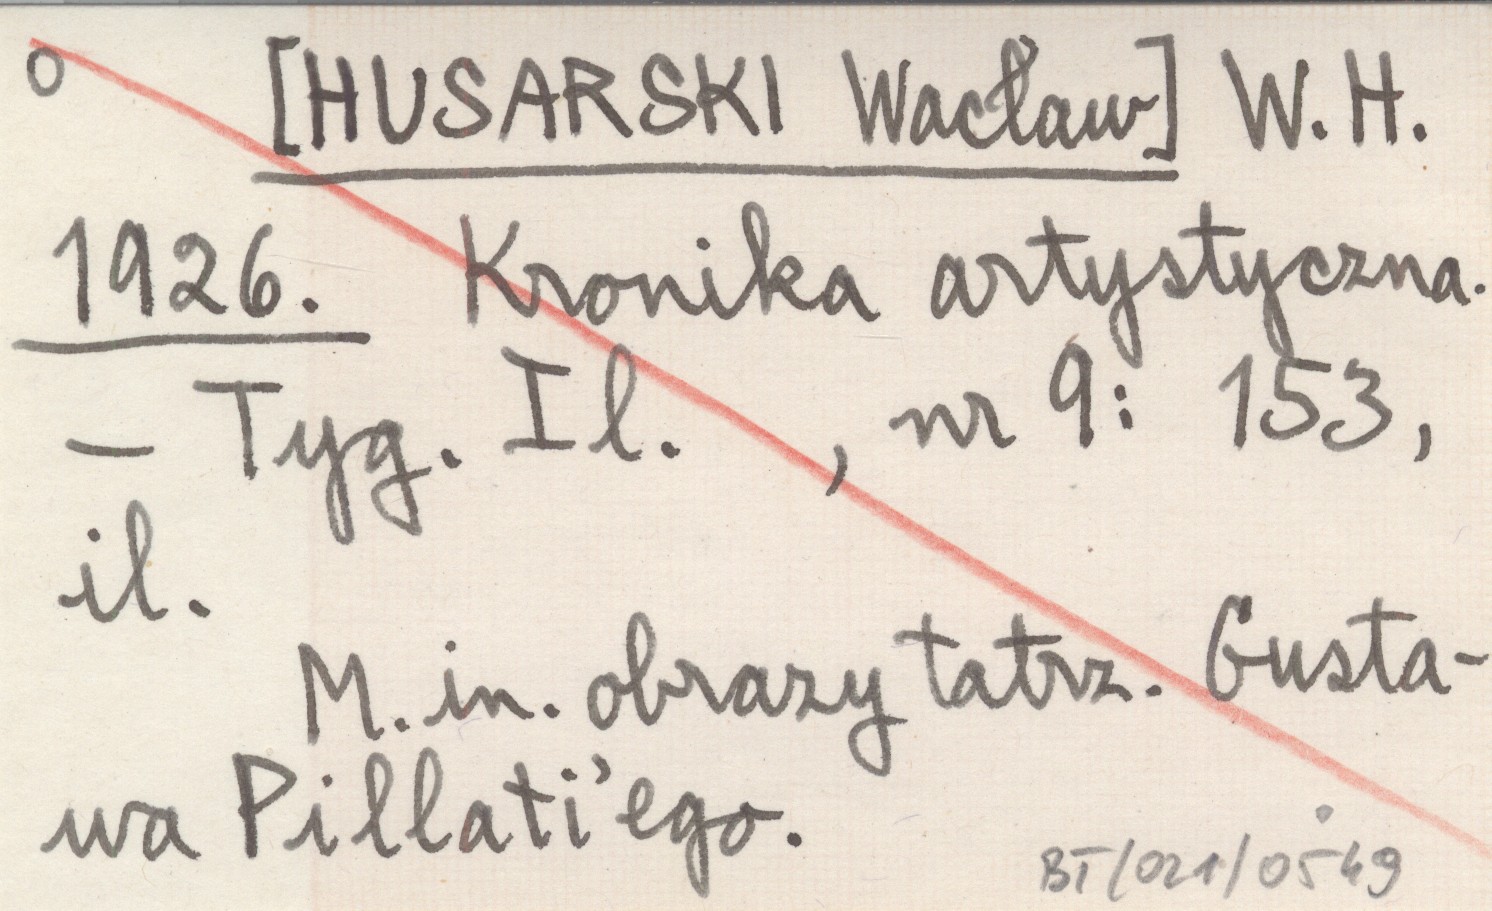 o [HUSARSKI Wacław] W.H.
1926. Kronika artystyczna.
– Tyg. Il. , nr 9: 153,
il.
M. in. obrazy tatrz. Gusta-
wa Pillati'ego.
BT/021/0549